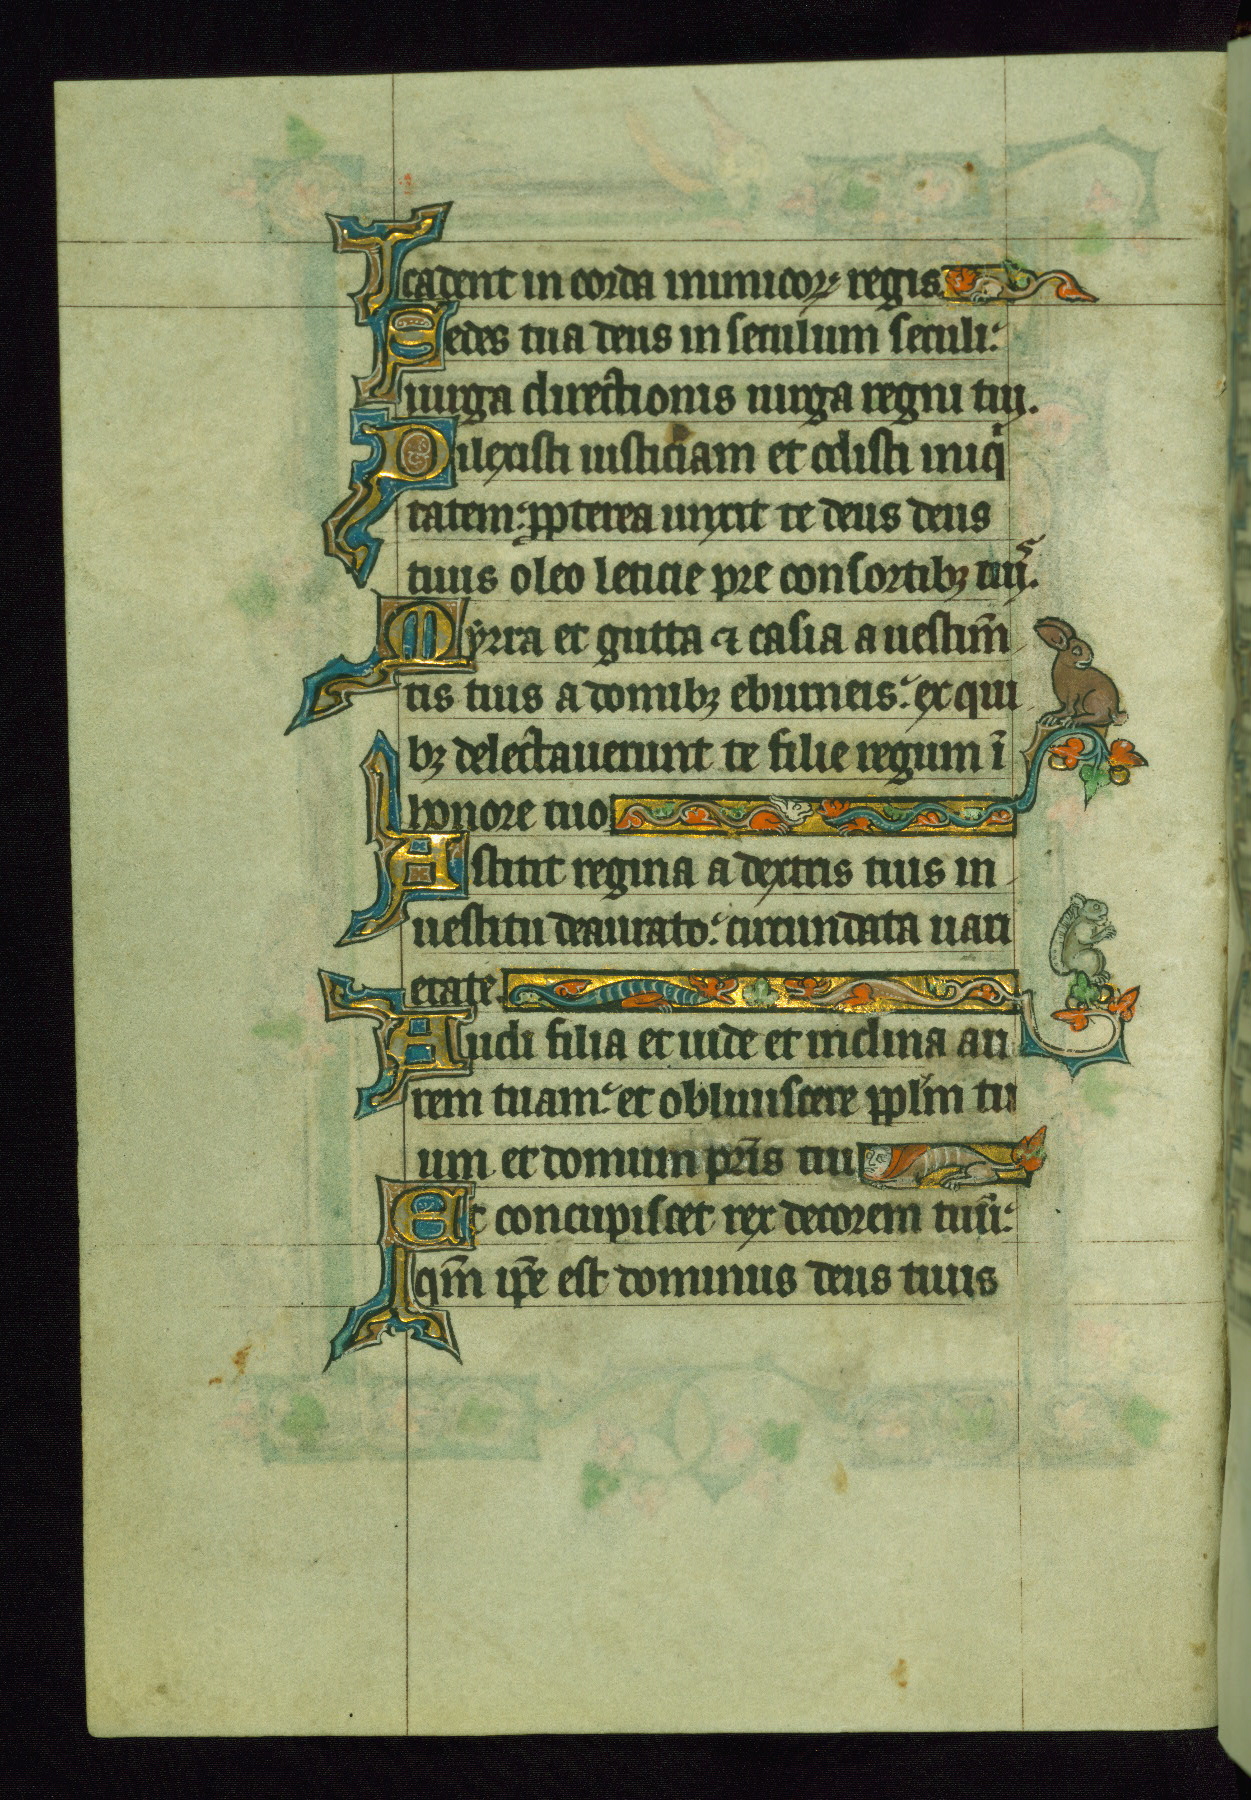 cadent in corda inimicoꝝ regis
Sedes tua deus in seculum seculi:
uirga directionis uirga regni tui.
Dilexisti iusticiam et odisti iniqi
tatem: ꝓpterea unxit te deus deus
tuus oleo leticie pre consortibꝫ tuis.
Myrra et gutta ⁊ casia a uestim̄
tis tuis a domibꝫ eburneis: ex qui
bꝫ delectauerunt te filie regum ī
honore tuo
Astitit regina a dextris tuis in
uestitu deaurato: circundata uari
etate.
Audi filia et uide et inclina au
rem tuam: et obliuiscere ppl̄m tu
um et domum pr̄is tui
Et concupiscet rex decorem tuū:
qm̄ ip̄e est dominus deus tuus